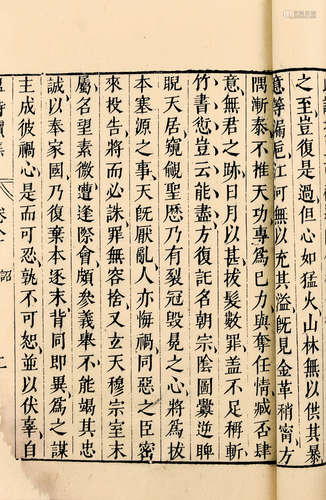 之至豈復是過心如猛火山林無以供其暴
意等漏巵江河無以充其溢旣見金革稍甯方
隅漸泰不推天功專爲已力與奪任情臧否肆
意無君之跡日月以甚拔髮數罪蓋不足稱斬
竹書愆豈云能盡方復詭名朝宗陰圖釁逆睥
睨天居窺覦聖曆乃有裂冠毀冕之心將爲拔
本塞源之事天旣厭亂人亦悔禍同惡之臣密
來投告將而必誅罪無容捨又玄天穆宗室末
屬名望素微遭逢際會頗參義舉不能竭其忠
誠以奉家國乃復棄本逐末背同即異爲之謀
主成彼禍心是而可忍孰不可恕並以伏辜自
詔